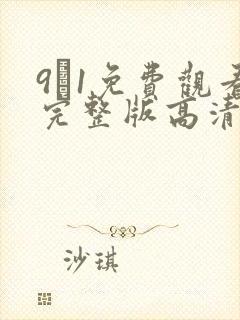 9 1免費觀看
完整版高清
沙琪